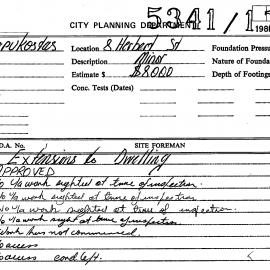 CITY PLANNING DEPARTMENT 5341/1
198
opukostas Location 8 Herbert St Foundation Pressu
Description Minor Nature of Founda
Estimate $ 8000 Depth of Footings
Conc. Tests (Dates)
D.A. No. SITE FOREMAN
Extensions to Dwelling
APPROVED
No y/a work sighted at time of inspection.
No y/a work sighted at time of inspection
No y/a work sighted at time of inspection.
No y/a work sight at time of inspection
Work has not commenced.
access
access cond 6H.